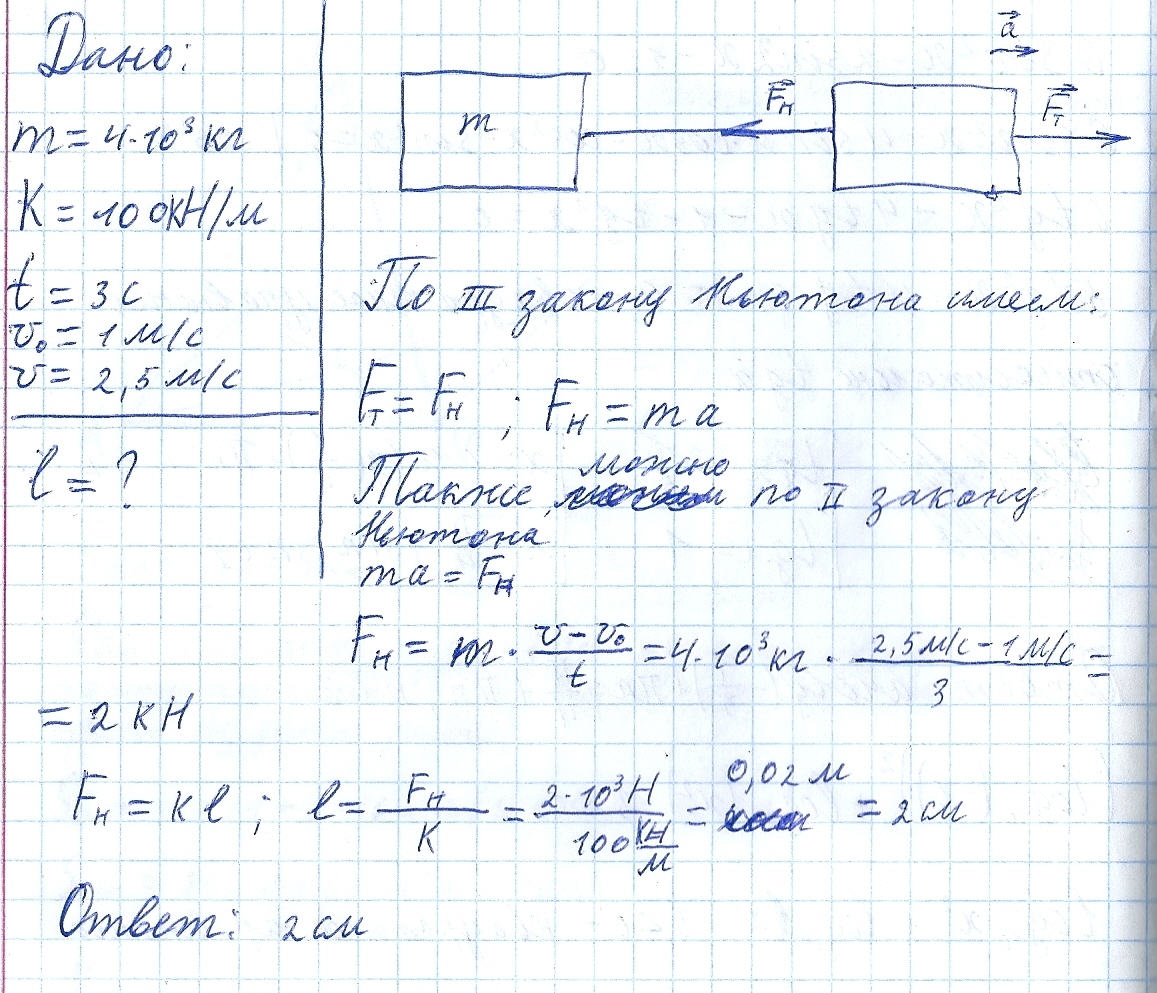 Дано:
m = 4·10³ кг
K = 100кН/м
t = 3 с
v₀ = 1 м/с
v = 2,5 м/с
l = ?
m
F⃗н
a⃗
F⃗т
По III закону Ньютона имеем:
Fт = Fн ; Fн = ma
Также, можно по II закону
Ньютона
ma = Fн
Fн = m · (v - v₀)/t = 4·10³ кг · (2,5 м/с - 1 м/с)/3 =
= 2 кН
Fн = kl ; l = Fн/K = 2·10³ Н/100 кН/м = 0,02 м = 2 см
Ответ: 2 см